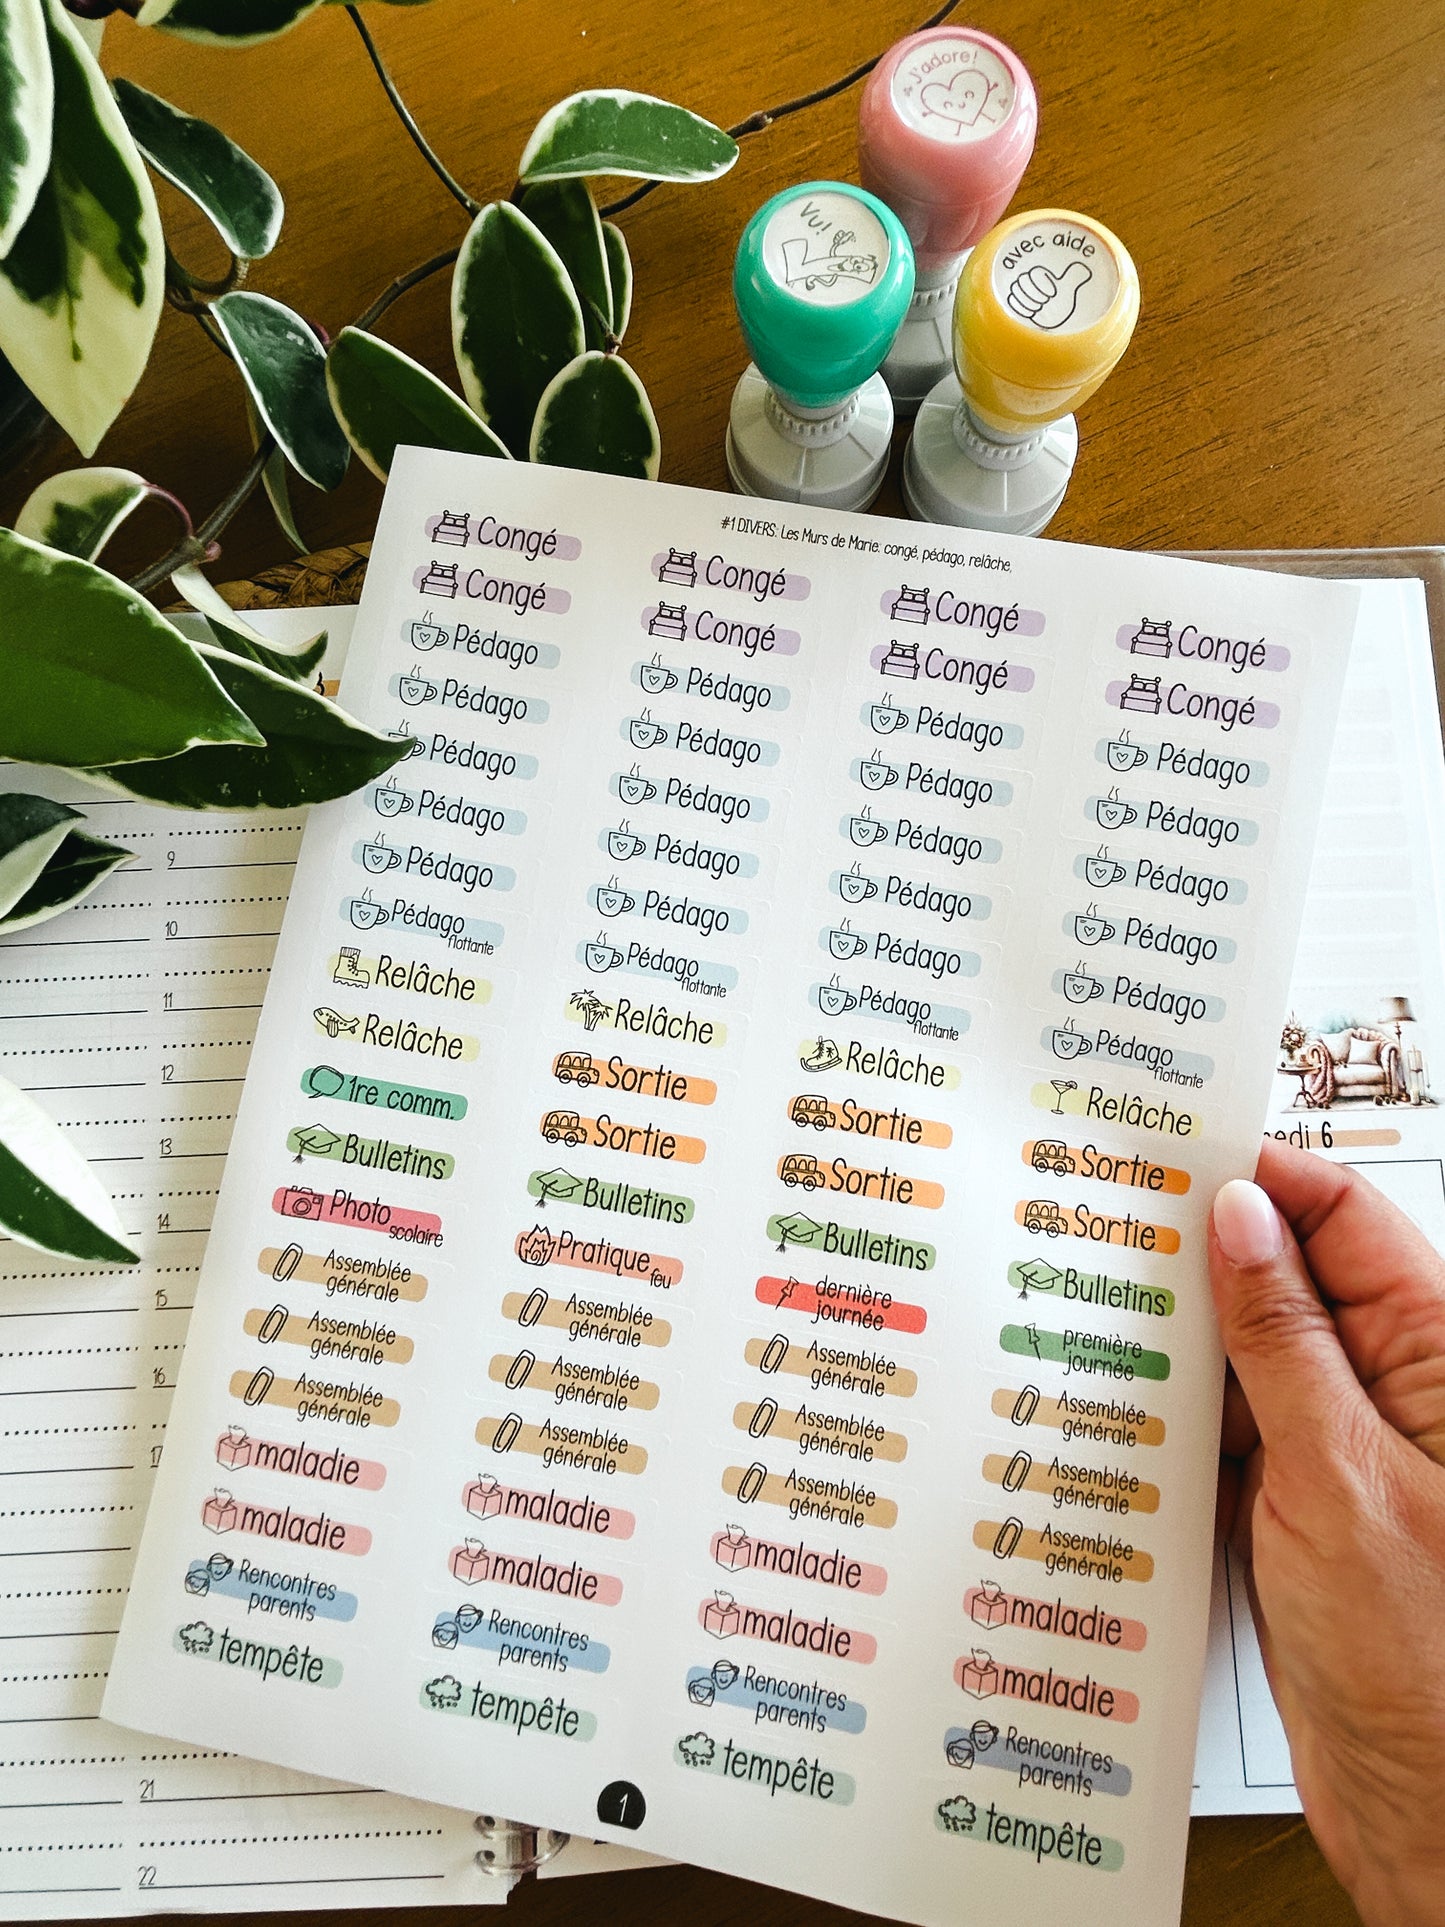 J'adore!
Vu!
avec aide
#1 DIVERS: Les Murs de Marie: congé, pédago, relâche,
Congé
Congé
Pédago
Pédago
Pédago
Pédago
Pédago
Pédago
flottante
Relâche
Relâche
1re comm.
Bulletins
Photo
scolaire
Assemblée
générale
Assemblée
générale
Assemblée
générale
maladie
maladie
Rencontres
parents
tempête
Congé
Congé
Pédago
Pédago
Pédago
Pédago
Pédago
Pédago
flottante
Relâche
Sortie
Sortie
Bulletins
Pratique
feu
Assemblée
générale
Assemblée
générale
Assemblée
générale
maladie
maladie
Rencontres
parents
tempête
Congé
Congé
Pédago
Pédago
Pédago
Pédago
Pédago
Pédago
flottante
Relâche
Sortie
Sortie
Bulletins
dernière
journée
Assemblée
générale
Assemblée
générale
Assemblée
générale
maladie
maladie
Rencontres
parents
tempête
Congé
Congé
Pédago
Pédago
Pédago
Pédago
Pédago
Pédago
flottante
Relâche
Sortie
Sortie
Bulletins
première
journée
Assemblée
générale
Assemblée
générale
Assemblée
générale
maladie
maladie
Rencontres
parents
tempête
1
9
10
11
12
13
14
15
16
17
21
22
6